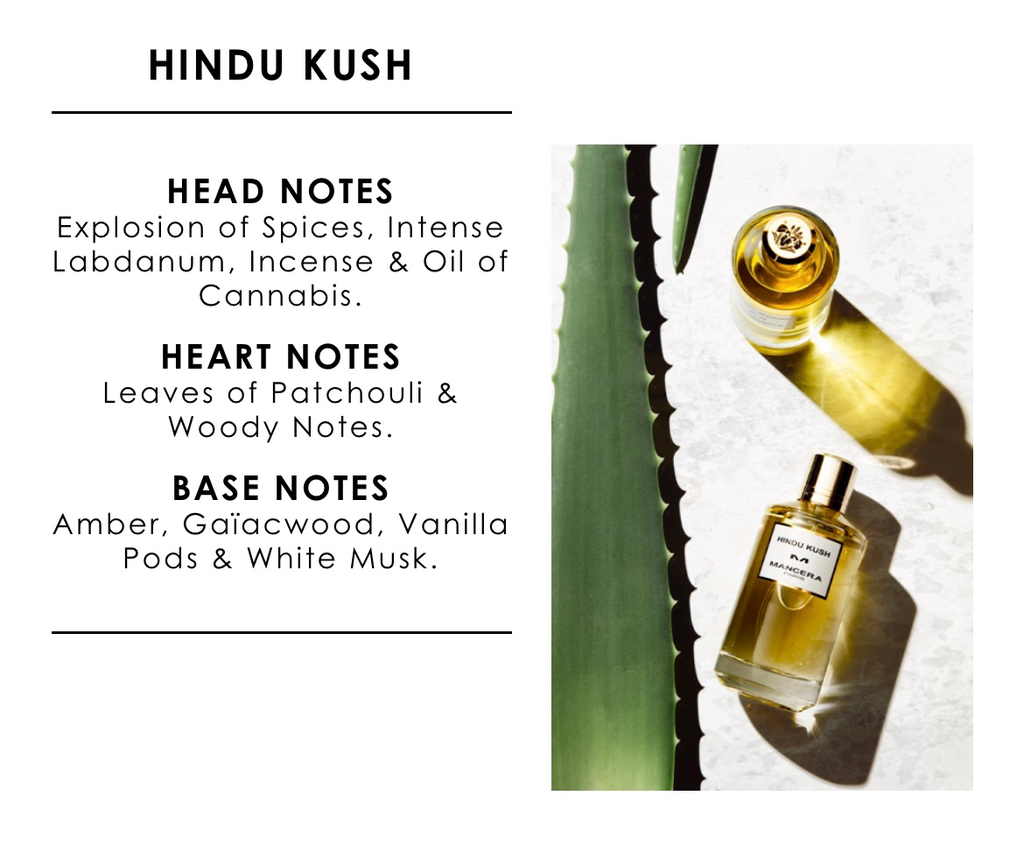 HINDU KUSH
HEAD NOTES
Explosion of Spices, Intense
Labdanum, Incense & Oil of
Cannabis.
HEART NOTES
Leaves of Patchouli &
Woody Notes.
BASE NOTES
Amber, Gaïacwood, Vanilla
Pods & White Musk.
HINDU KUSH
MANCERA
PARIS